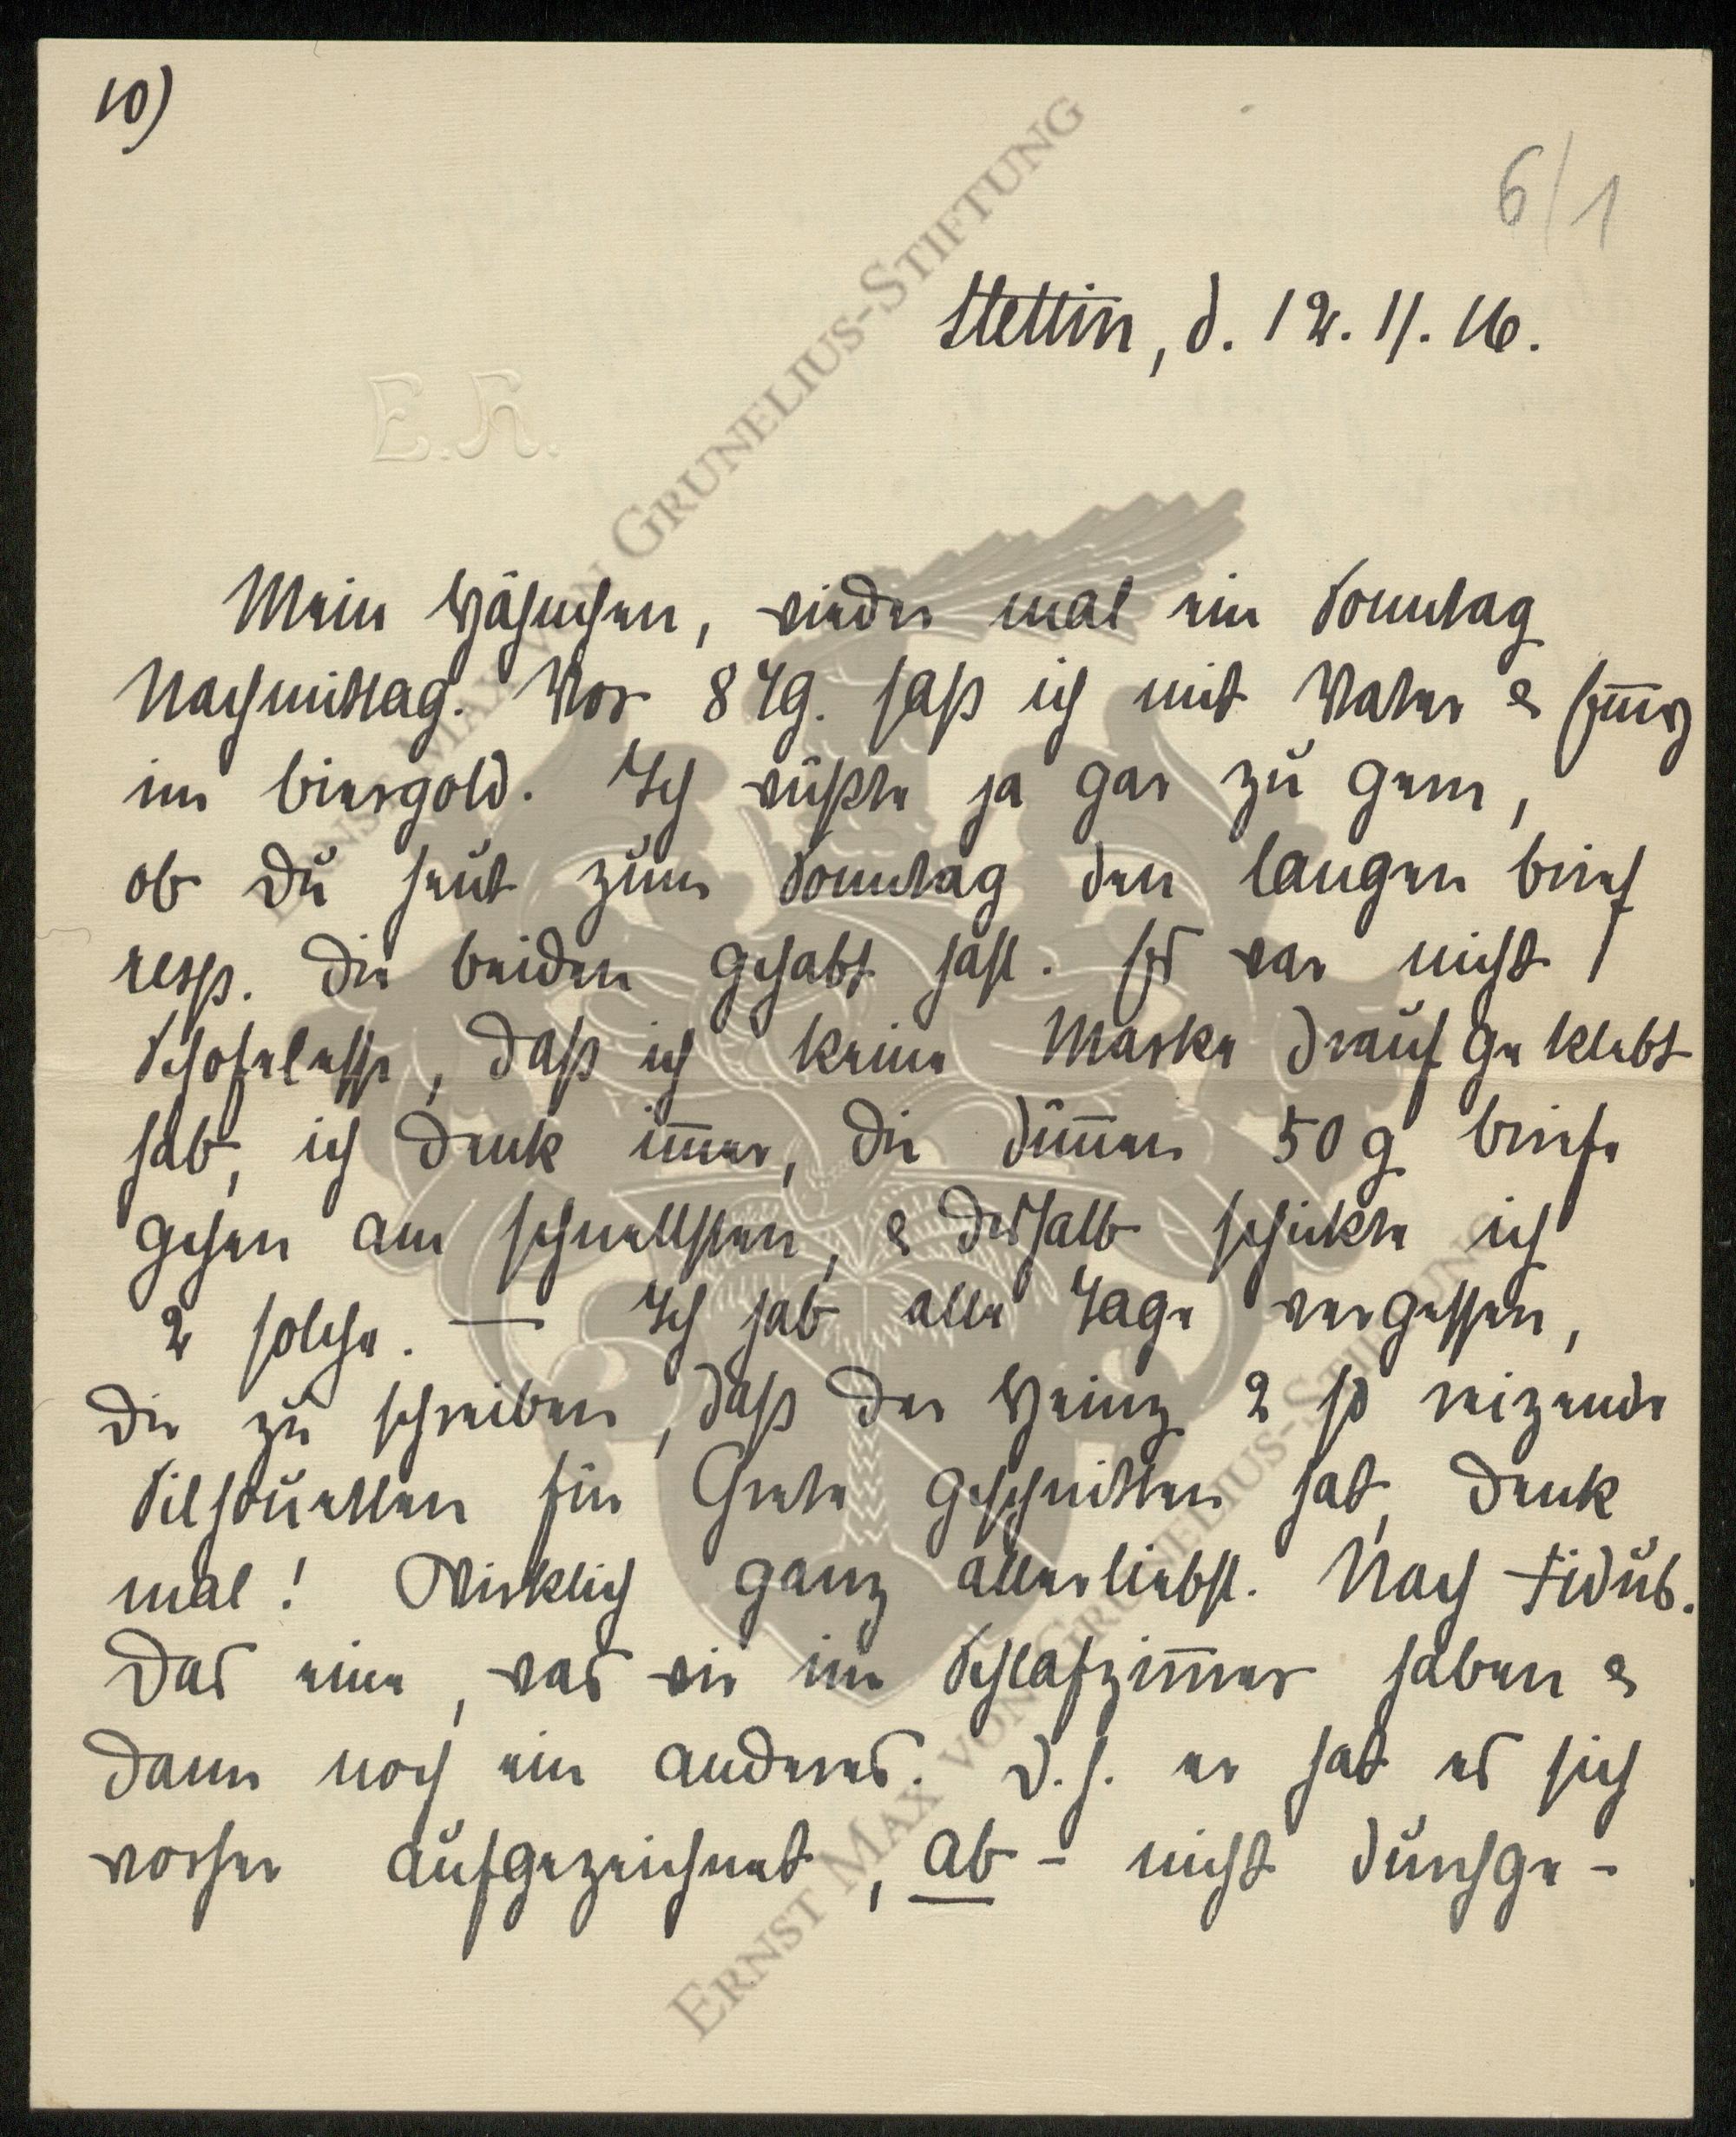 10)
6/1
Stettin, d. 12. 11. 16.
E.K.
Mein Hähnchen, wieder mal ein Sonntag
Nachmittag. Vor 8 Tg. saß ich mit Vater &
im Rheingold. Ich wüßte ja gar zu gern,
ob Du heut zum Sonntag den langen Brief
resp. die beiden gehabt hast. Es war nicht
, daß ich keine Marke drauf geklebt
hab, ich denk im̅er, die dün̅en 50 g Briefe
gehen am schnellsten, & deshalb schickte ich
2 solche. — Ich hab alle Tage vergessen,
Dir zu schreiben, daß der Heinz 2 so reizende
Silhouetten für Grete geschnitten hat, denk
mal! Wirklich ganz allerliebst. Nach Fidus.
Das eine, was wir im Schlafzim̅er haben &
dann noch ein anderes. D.h. er hat es sich
vorher aufgezeichnet, ab- nicht durchge-
ERNST MAX VON GRUNELIUS-STIFTUNG
ERNST MAX VON GRUNELIUS-STIFTUNG